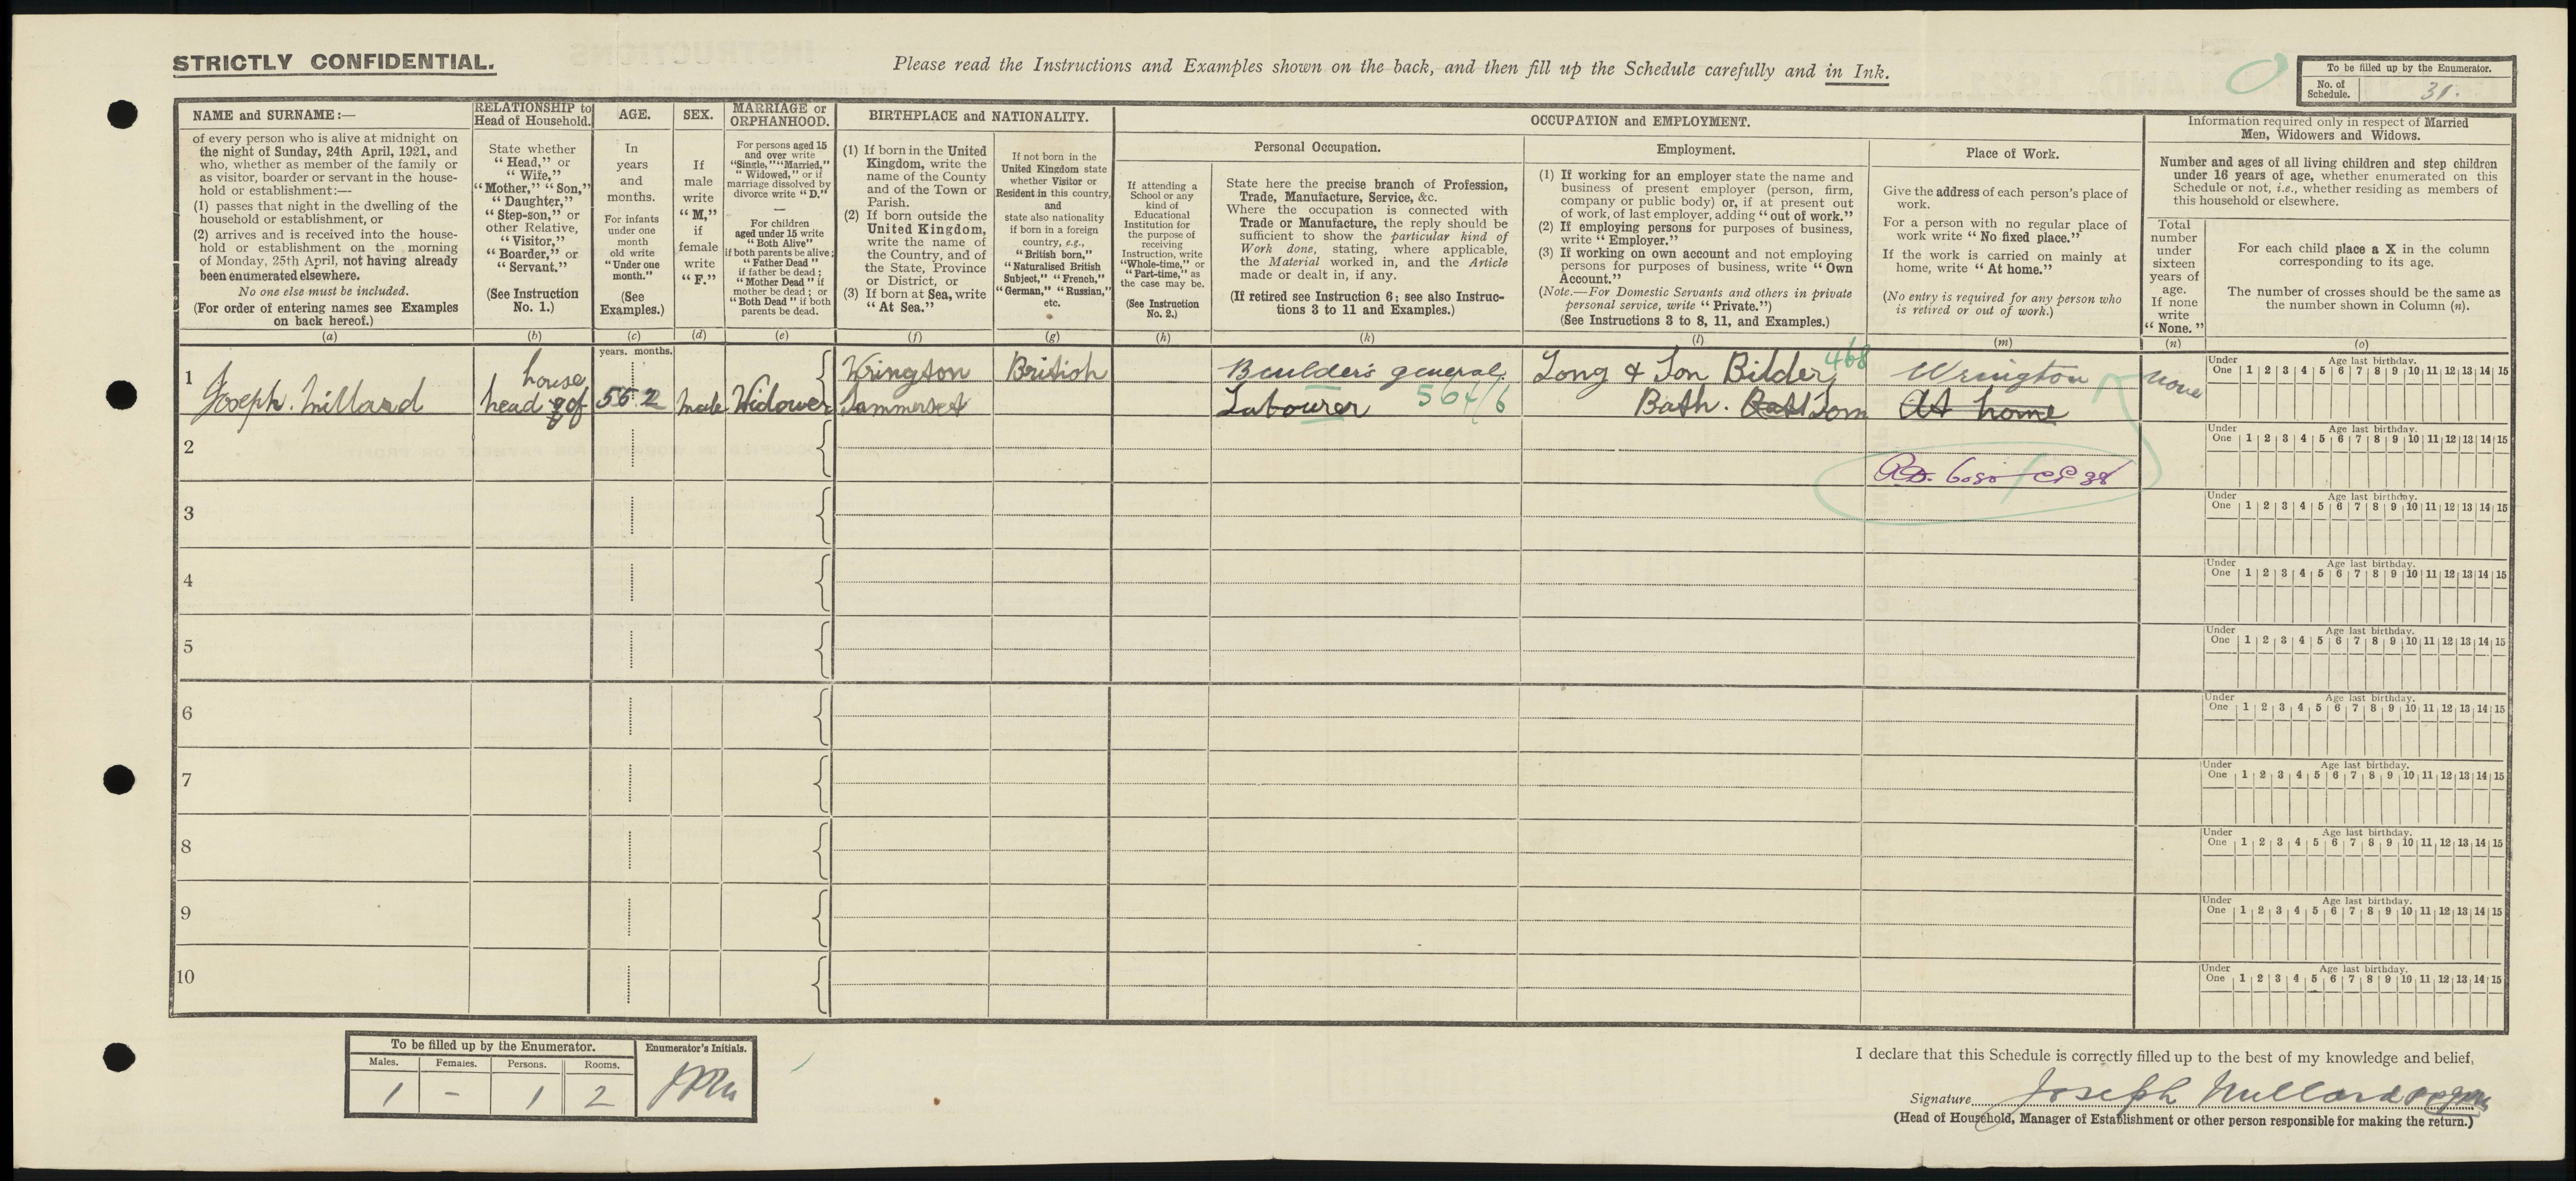 STRICTLY CONFIDENTIAL.
Please read the Instructions and Examples shown on the back, and then fill up the Schedule carefully and in Ink.
To be filled up by the Enumerator.
No. of Schedule. 31.
NAME and SURNAME:—
of every person who is alive at midnight on
the night of Sunday, 24th April, 1921, and
who, whether as member of the family or
as visitor, boarder or servant in the house-
hold or establishment:—
(1) passes that night in the dwelling of the
household or establishment, or
(2) arrives and is received into the house-
hold or establishment on the morning
of Monday, 25th April, not having already
been enumerated elsewhere.
No one else must be included.
(For order of entering names see Examples
on back hereof.)
(a)
RELATIONSHIP to
Head of Household.
State whether
"Head," or
"Wife,"
"Mother," "Son,"
"Daughter,"
"Step-son," or
other Relative,
"Visitor,"
"Boarder," or
"Servant."
(See Instruction
No. 1.)
(b)
AGE.
In
years
and
months.
For infants
under one
month
old write
"Under one
month."
(See
Examples.)
(c)
SEX.
If
male
write
"M,"
if
female
write
"F."
(d)
MARRIAGE or
ORPHANHOOD.
For persons aged 15
and over write
"Single," "Married,"
"Widowed," or if
marriage dissolved by
divorce write "D."
—
For children
aged under 15 write
"Both Alive"
if both parents be alive;
"Father Dead"
if father be dead;
"Mother Dead" if
mother be dead; or
"Both Dead" if both
parents be dead.
(e)
BIRTHPLACE and NATIONALITY.
(1) If born in the United
Kingdom, write the
name of the County
and of the Town or
Parish.
(2) If born outside the
United Kingdom,
write the name of
the Country, and of
the State, Province
or District, or
(3) If born at Sea, write
"At Sea."
(f)
If not born in the
United Kingdom state
whether Visitor or
Resident in this country,
and
state also nationality
if born in a foreign
country, e.g.,
"British born,"
"Naturalised British
Subject," "French,"
"German," "Russian,"
etc.
(g)
OCCUPATION and EMPLOYMENT.
Personal Occupation.
If attending a
School or any
kind of
Educational
Institution for
the purpose of
receiving
Instruction, write
"Whole-time," or
"Part-time," as
the case may be.
(See Instruction
No. 2.)
(h)
State here the precise branch of Profession,
Trade, Manufacture, Service, &c.
Where the occupation is connected with
Trade or Manufacture, the reply should be
sufficient to show the particular kind of
Work done, stating, where applicable,
the Material worked in, and the Article
made or dealt in, if any.
(If retired see Instruction 6; see also Instruc-
tions 3 to 11 and Examples.)
(k)
Employment.
(1) If working for an employer state the name and
business of present employer (person, firm,
company or public body) or, if at present out
of work, of last employer, adding "out of work."
(2) If employing persons for purposes of business,
write "Employer."
(3) If working on own account and not employing
persons for purposes of business, write "Own
Account."
(Note.—For Domestic Servants and others in private
personal service, write "Private.")
(See Instructions 3 to 8, 11, and Examples.)
(l)
Place of Work.
Give the address of each person's place of
work.
For a person with no regular place of
work write "No fixed place."
If the work is carried on mainly at
home, write "At home."
(No entry is required for any person who
is retired or out of work.)
(m)
Information required only in respect of Married
Men, Widowers and Widows.
Number and ages of all living children and step children
under 16 years of age, whether enumerated on this
Schedule or not, i.e., whether residing as members of
this household or elsewhere.
Total
number
under
sixteen
years of
age.
If none
write
"None."
(n)
For each child place a X in the column
corresponding to its age.
The number of crosses should be the same as
the number shown in Column (n).
(o)
years. months.
1 Joseph. Millard
house
head of
56 2
Male
Widower
Wrington
Sammerset
British
Boulder's general
Labourer 564/6
Long & Son Bilder 468
Bath. Som
Wrington
At home
none
Under One Age last birthday. 1 2 3 4 5 6 7 8 9 10 11 12 13 14 15
2
Under One Age last birthday. 1 2 3 4 5 6 7 8 9 10 11 12 13 14 15
3
Under One Age last birthday. 1 2 3 4 5 6 7 8 9 10 11 12 13 14 15
4
Under One Age last birthday. 1 2 3 4 5 6 7 8 9 10 11 12 13 14 15
5
Under One Age last birthday. 1 2 3 4 5 6 7 8 9 10 11 12 13 14 15
6
Under One Age last birthday. 1 2 3 4 5 6 7 8 9 10 11 12 13 14 15
7
Under One Age last birthday. 1 2 3 4 5 6 7 8 9 10 11 12 13 14 15
8
Under One Age last birthday. 1 2 3 4 5 6 7 8 9 10 11 12 13 14 15
9
Under One Age last birthday. 1 2 3 4 5 6 7 8 9 10 11 12 13 14 15
10
Under One Age last birthday. 1 2 3 4 5 6 7 8 9 10 11 12 13 14 15
To be filled up by the Enumerator.
Males. Females. Persons. Rooms.
1 - 1 2
Enumerator's Initials.
I declare that this Schedule is correctly filled up to the best of my knowledge and belief,
Signature Joseph Millard
(Head of Household, Manager of Establishment or other person responsible for making the return.)